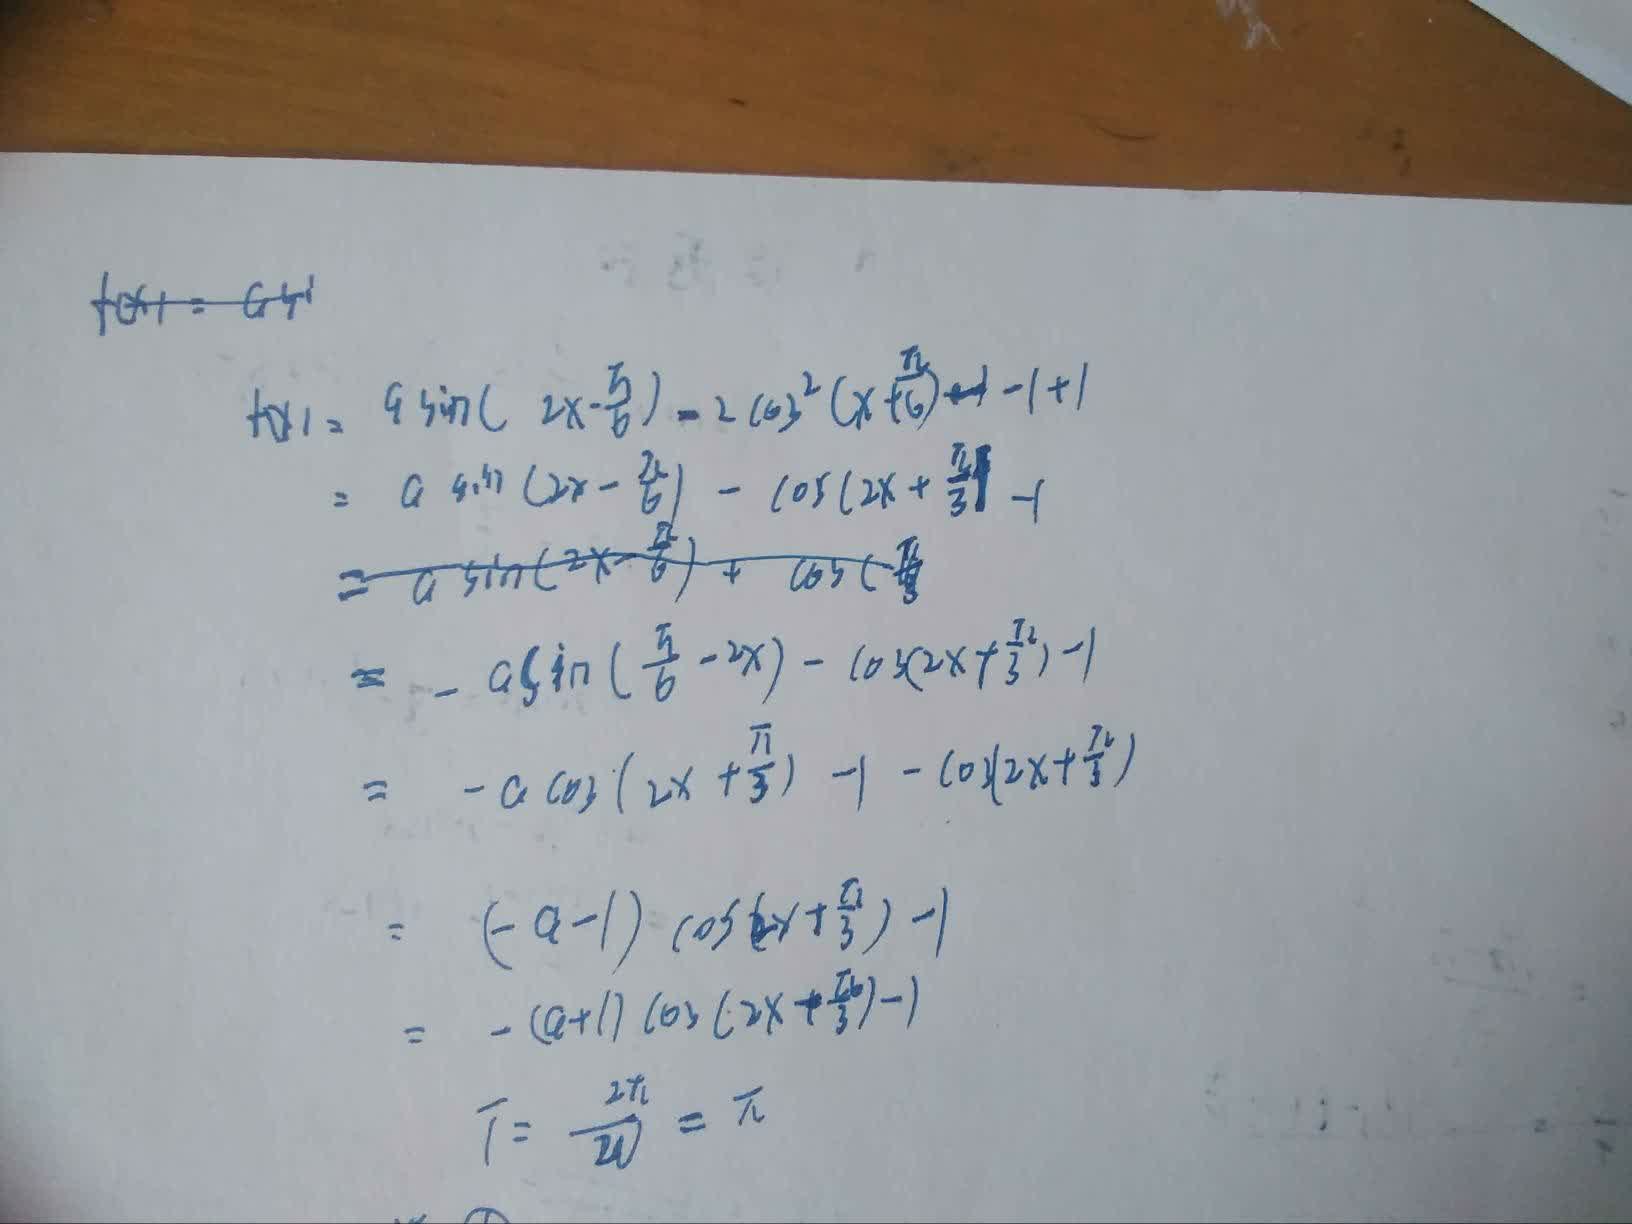 f(x) = a si
f(x) = a sin( 2x - π/6 ) - 2 cos² (x + π/6) + 1 - 1 + 1
= a sin (2x - π/6) - cos (2x + π/3) - 1
= a sin (2x - π/6) + cos ( π/3
= - a sin ( π/6 - 2x) - cos(2x + π/3) - 1
= - a cos ( 2x + π/3 ) - 1 - cos(2x + π/3)
= (- a - 1) cos (2x + π/3) - 1
= - (a+1) cos (2x + π/3) - 1
T = 2π/2 = π
①